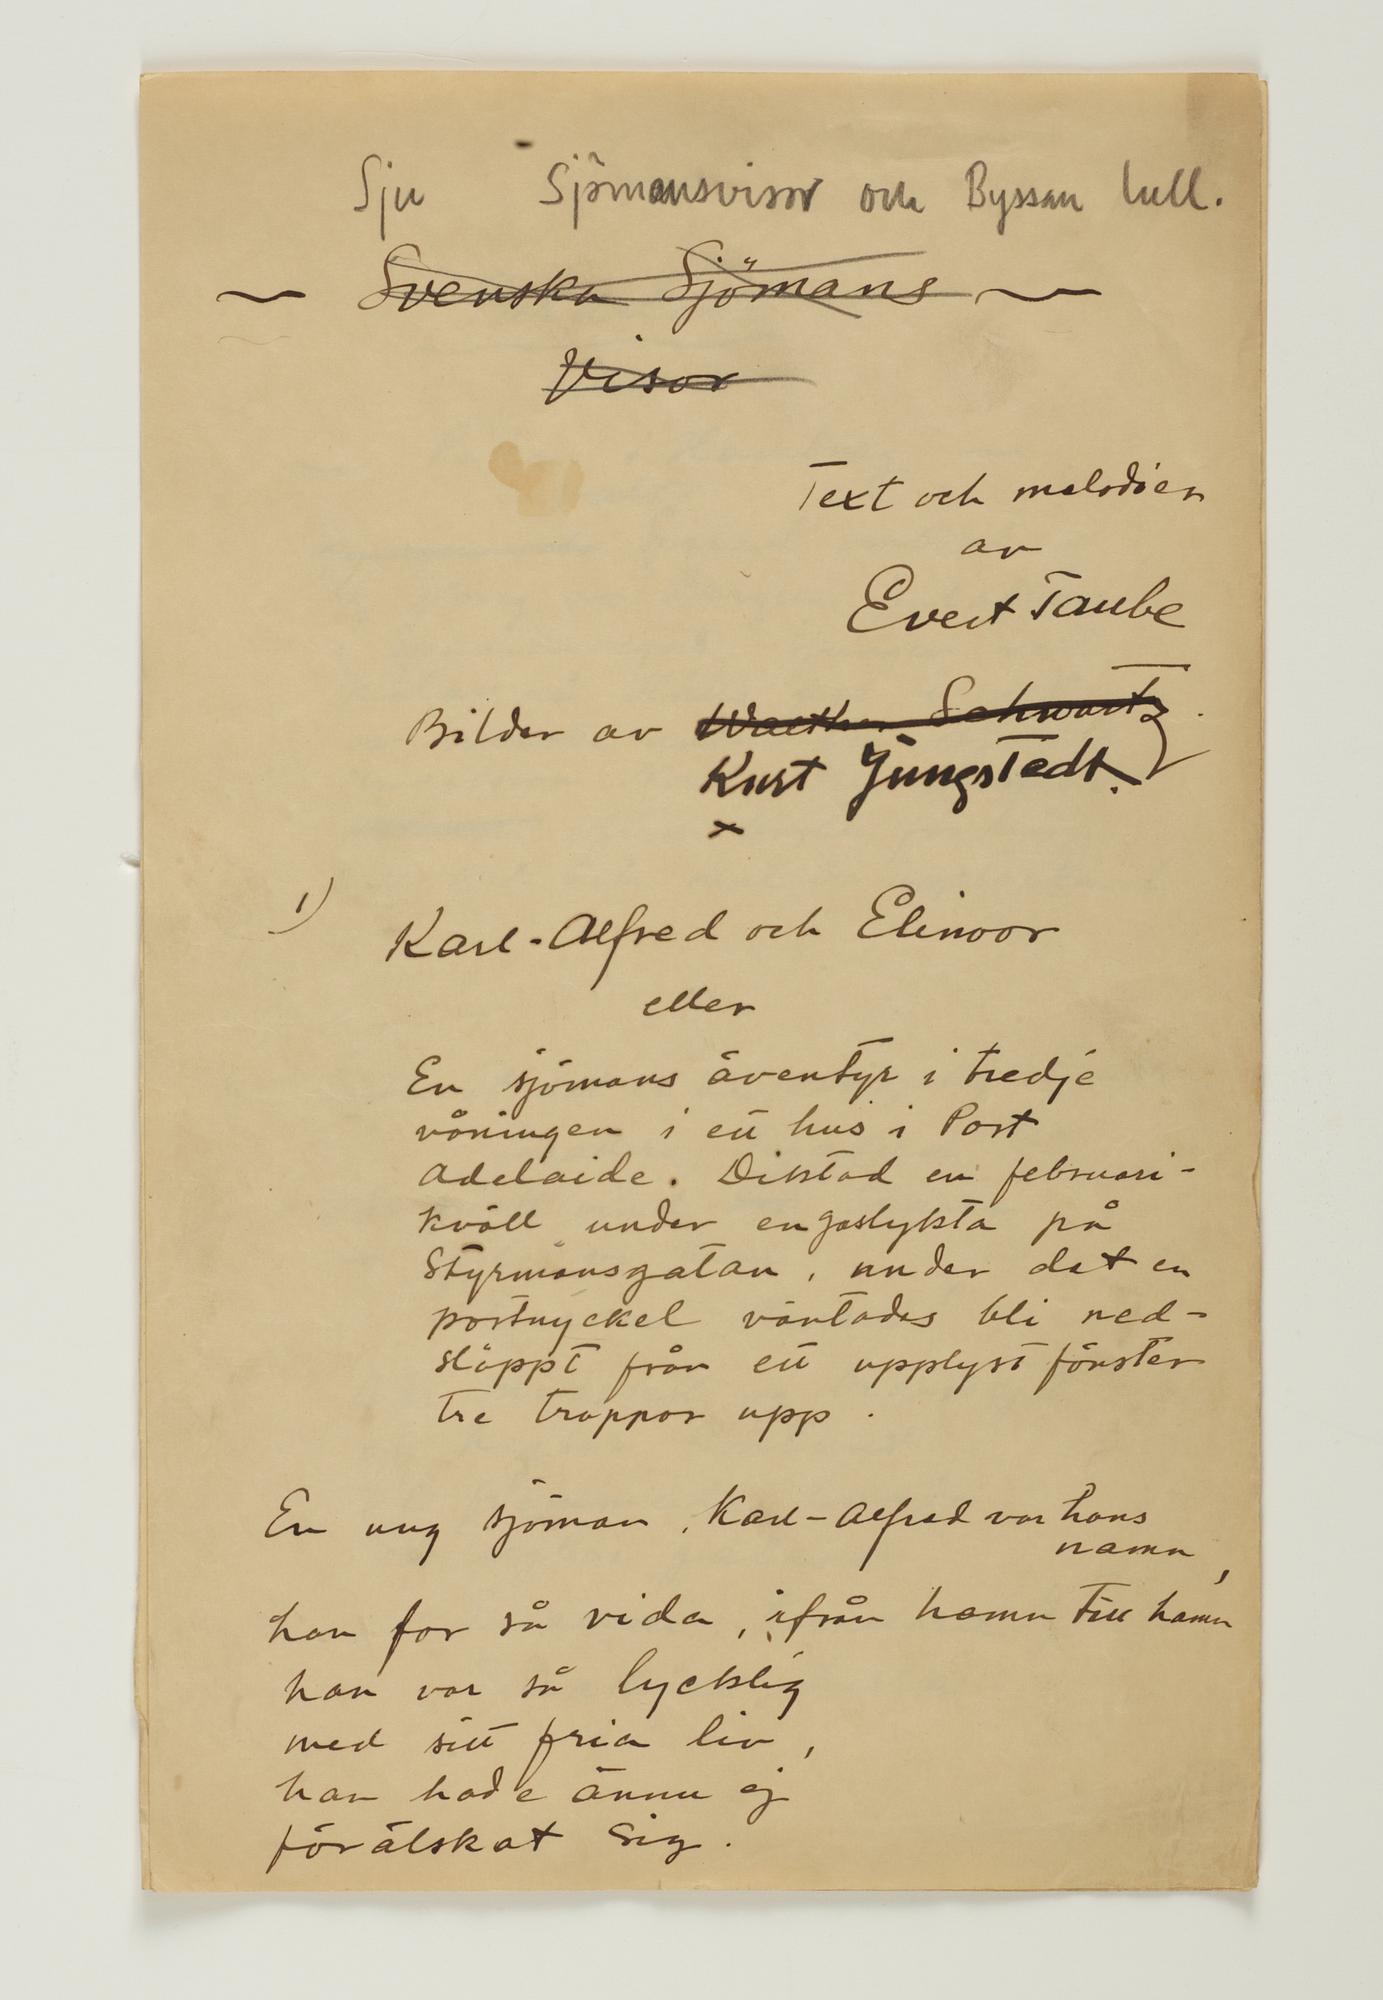 Sju Sjömansvisor och Byssan lull.
~ Svenska Sjömans ~
Visor
Text och melodier
av
Evert Taube
Bilder av Walther Schwartz
Kurt Jungstedt.
x
1)
Karl-Alfred och Elinoor
eller
En sjömans äventyr i tredje
våningen i ett hus i Port
Adelaide. Diktad en februari-
kväll under en gaslykta på
Styrmansgatan, under det en
portnyckel väntades bli ned-
släppt från ett upplyst fönster
tre trappor upp.
En ung sjöman, Karl-Alfred var hans
namn,
han for så vida, ifrån hamn till hamn
han var så lycklig
med sitt fria liv,
han hade ännu ej
förälskat sig.